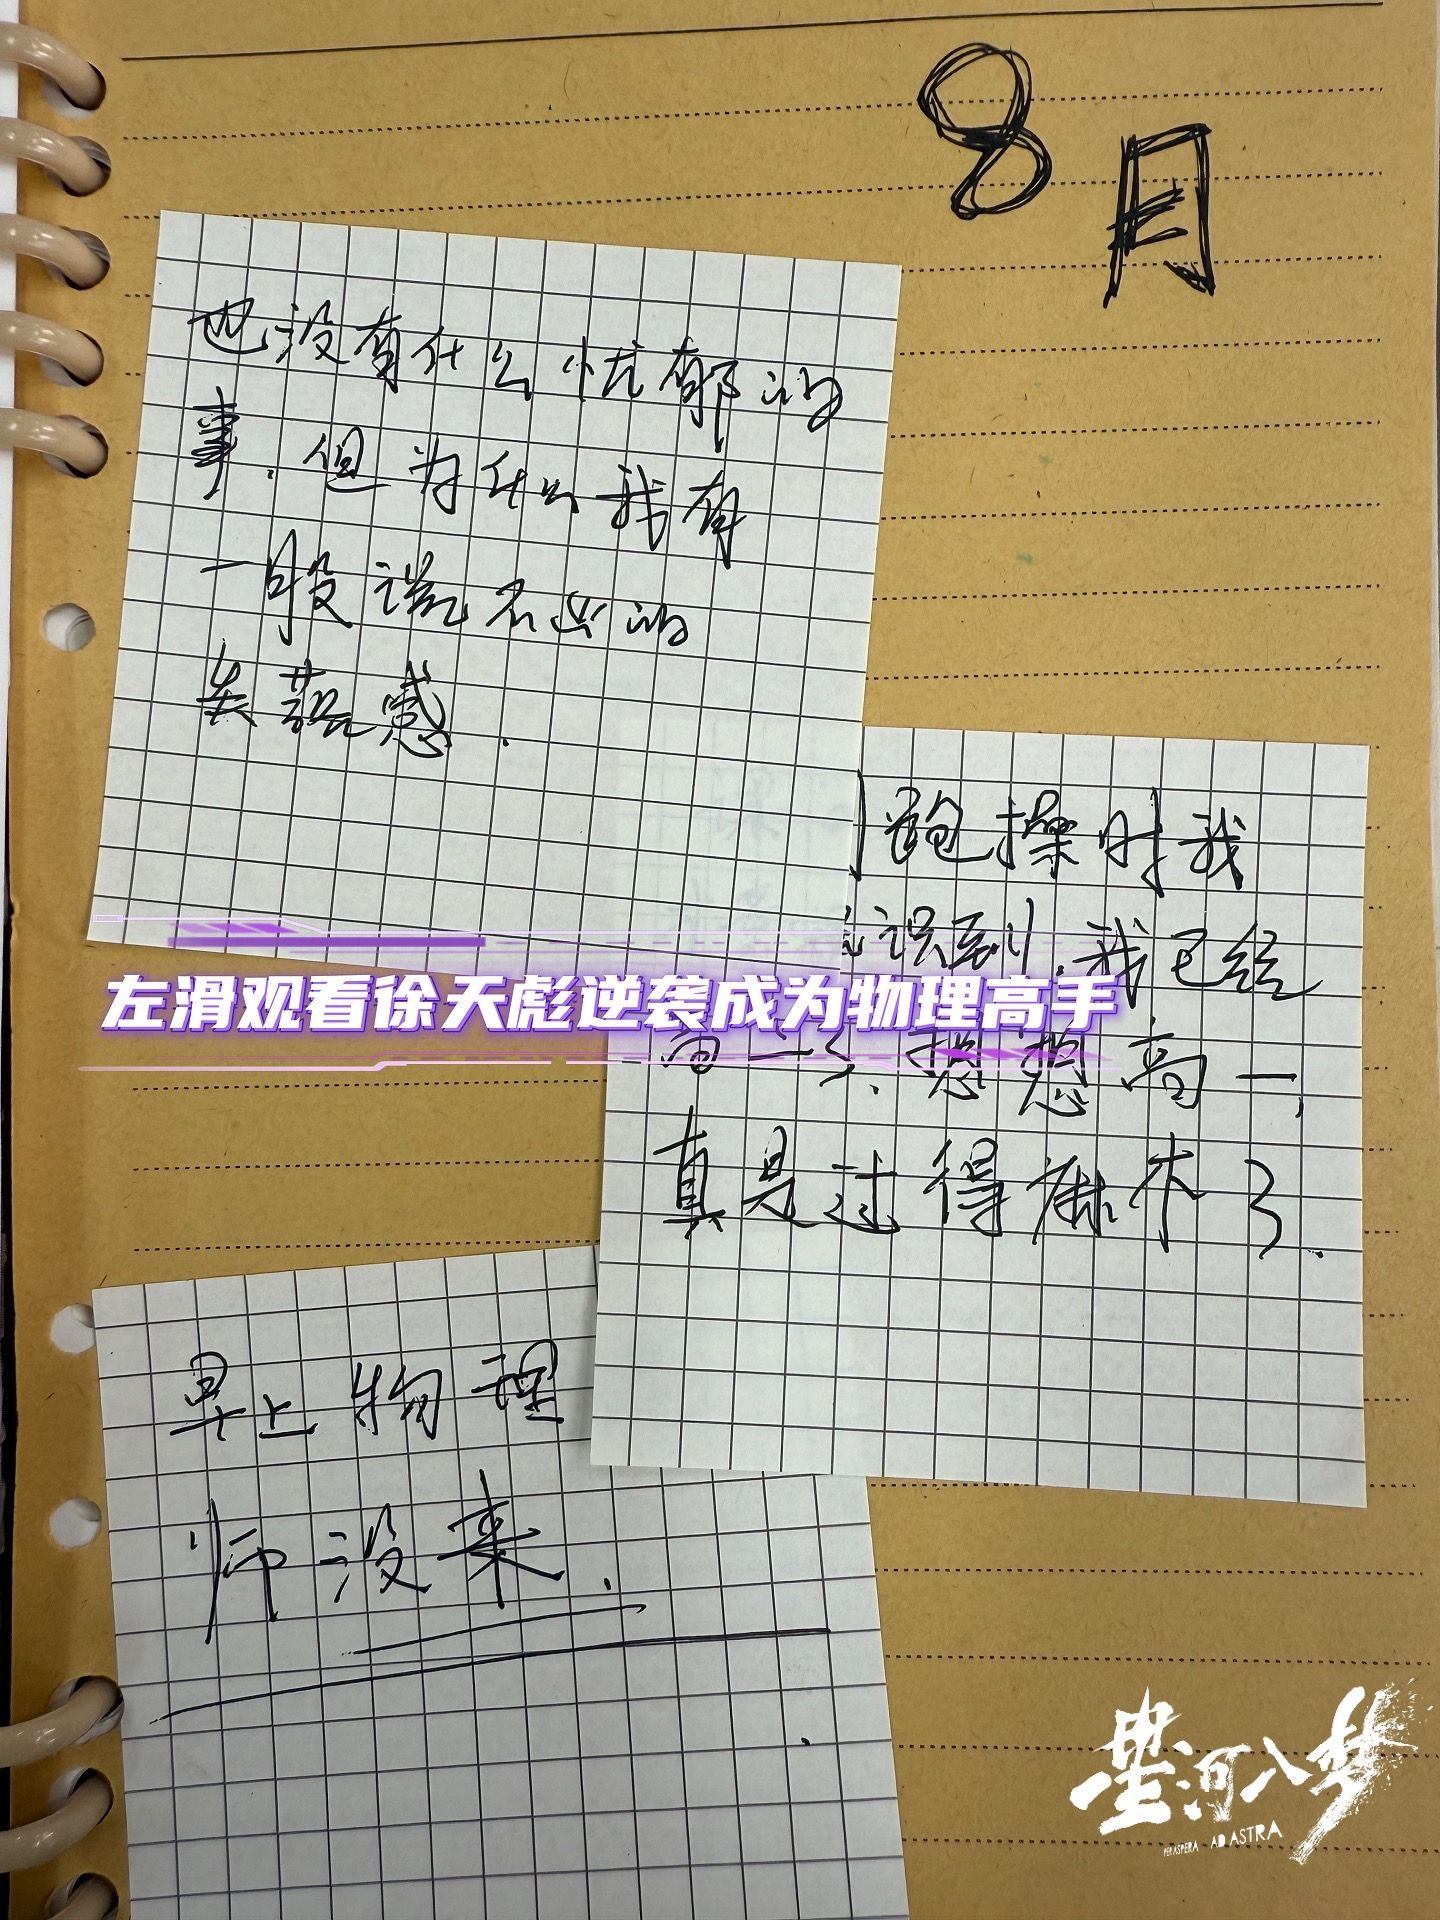 8月
也没有什么忧郁的
事.但为什么我有
一股说不出的
失落感.
跑操时我
识到,我已经
左滑观看徐天彪逆袭成为物理高手
高一了.想想高一,
真是过得麻木了.
早上物理
师没来.
星河入梦
PER ASPERA AD ASTRA